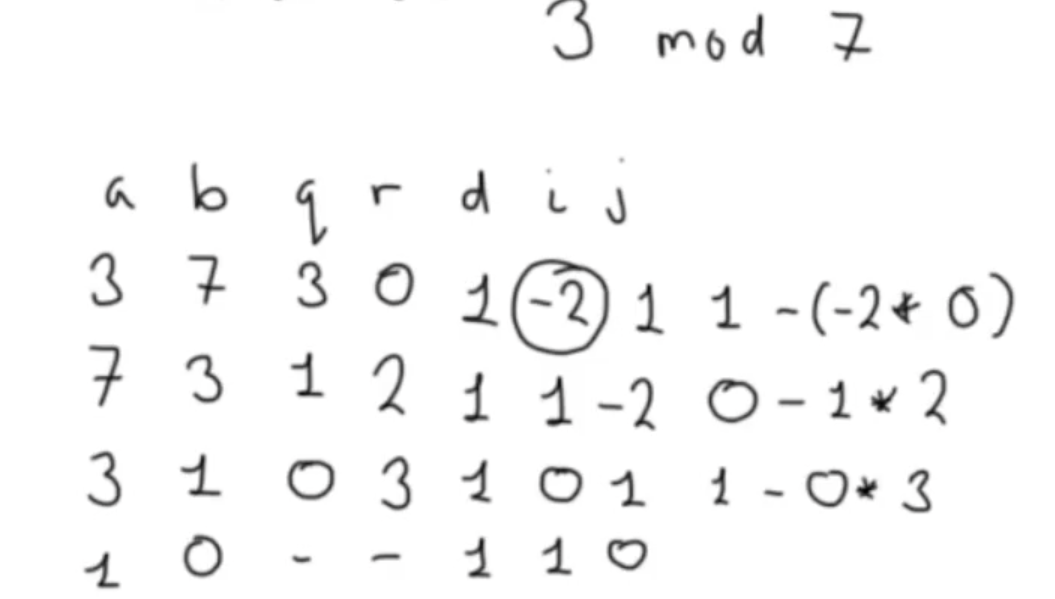 3 mod 7
a b q r d i j
3 7 3 0 1 -2 1 1 -(-2* 0)
7 3 1 2 1 1 -2 0 - 1 * 2
3 1 0 3 1 0 1 1 - 0* 3
1 0 - - 1 1 0